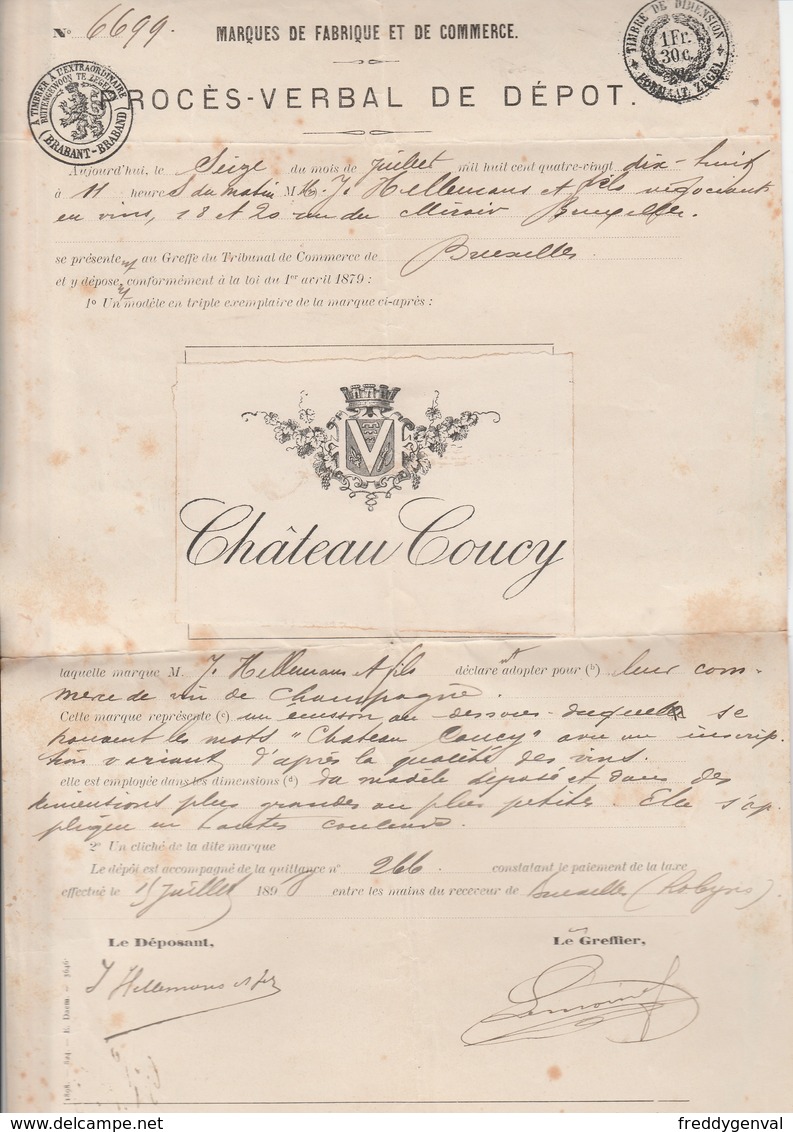 No 6699.
MARQUES DE FABRIQUE ET DE COMMERCE.
TIMBRE DE DIMENSION
1 Fr.
30 C.
FORMAAT ZEGEL
A TIMBRER A L'EXTRAORDINAIRE
BUITENGEWOON TE ZEGELEN
(BRABANT-BRABAND)
PROCÈS-VERBAL DE DÉPOT.
Aujourd'hui, le Seize du mois de Juillet mil huit cent quatre-vingt dix-huit
à 11 heures du matin M J. Hellemans et fils négociants
en vins, 18 et 20 rue du Miroir Bruxelles.
se présentent au Greffe du Tribunal de Commerce de Bruxelles
et y déposent conformément à la loi du 1er avril 1879 :
1o Un modèle en triple exemplaire de la marque ci-après :
V
Château Coucy
laquelle marque M. J. Hellemans et fils déclarent adopter pour (b) leur com-
merce de vin de Champagne.
Cette marque représente (c) un écusson au dessous duquel se
trouvent les mots "Chateau Coucy" avec un inscrip
tion variant d'après la qualité des vins.
elle est employée dans les dimensions (d) du modèle déposé et dans des
dimentions plus grandes ou plus petites. Elle s'ap
plique en toutes couleurs.
2o Un cliché de la dite marque
Le dépôt est accompagné de la quittance no 266 constatant le paiement de la taxe
effectué le 15 Juillet 1898 entre les mains du receveur de Bruxelles (Robyns)
Le Déposant,
Le Greffier,
J Hellemans et fils
1898. 
freddygenval